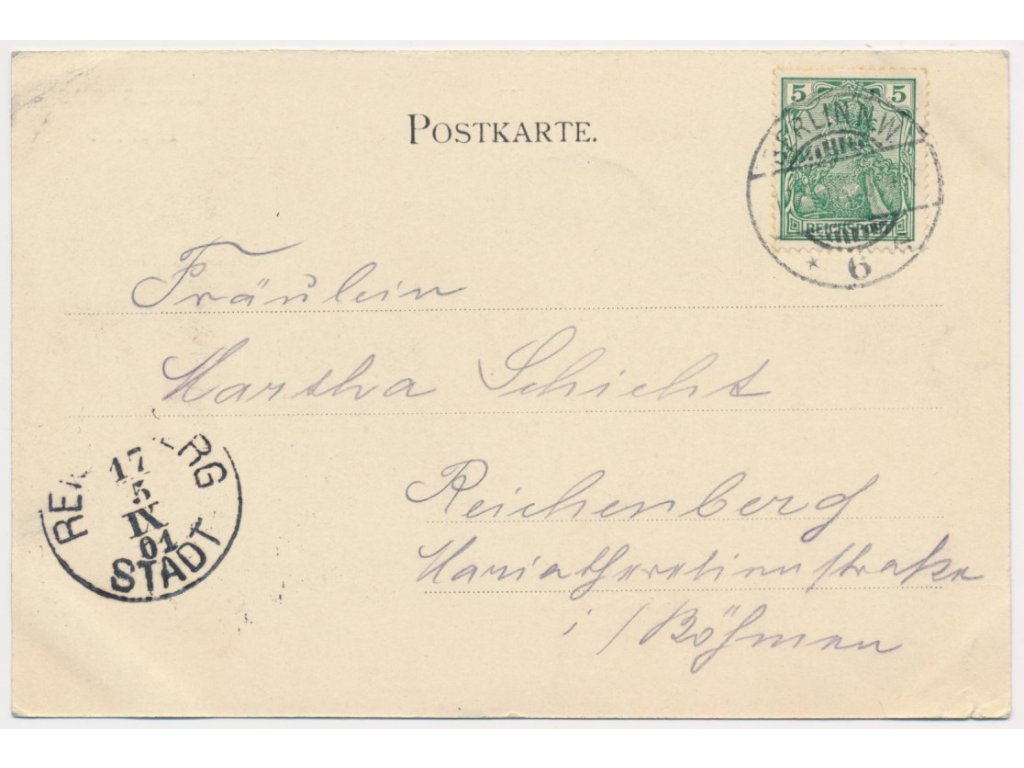 POSTKARTE.
5 5
BERLIN N.W.
REICHSPOST
* 6
Fräulein
Martha Schicht
Reichenberg
Mariatheresienstraße
i/Böhmen
17
5
IX
01
STADT